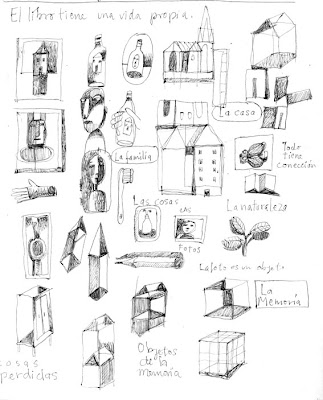 El libro tiene una vida propia.
La casa
La familia
Todo
tiene
conección
Las cosas
LAS
FOTOS
La naturaleza
La foto es un objeto
La
Memoria
cosas
perdidas
Objetos
de la
memoria